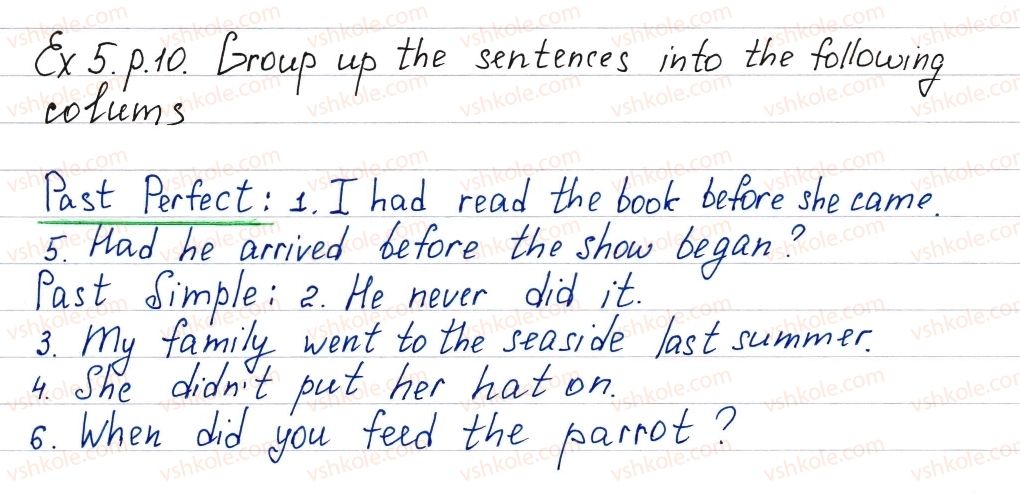 Ex 5. p.10. Group up the sentences into the following
colums
Past Perfect: 1. I had read the book before she came.
5. Had he arrived before the show began?
Past Simple: 2. He never did it.
3. My family went to the seaside last summer.
4. She didn't put her hat on.
6. When did you feed the parrot?